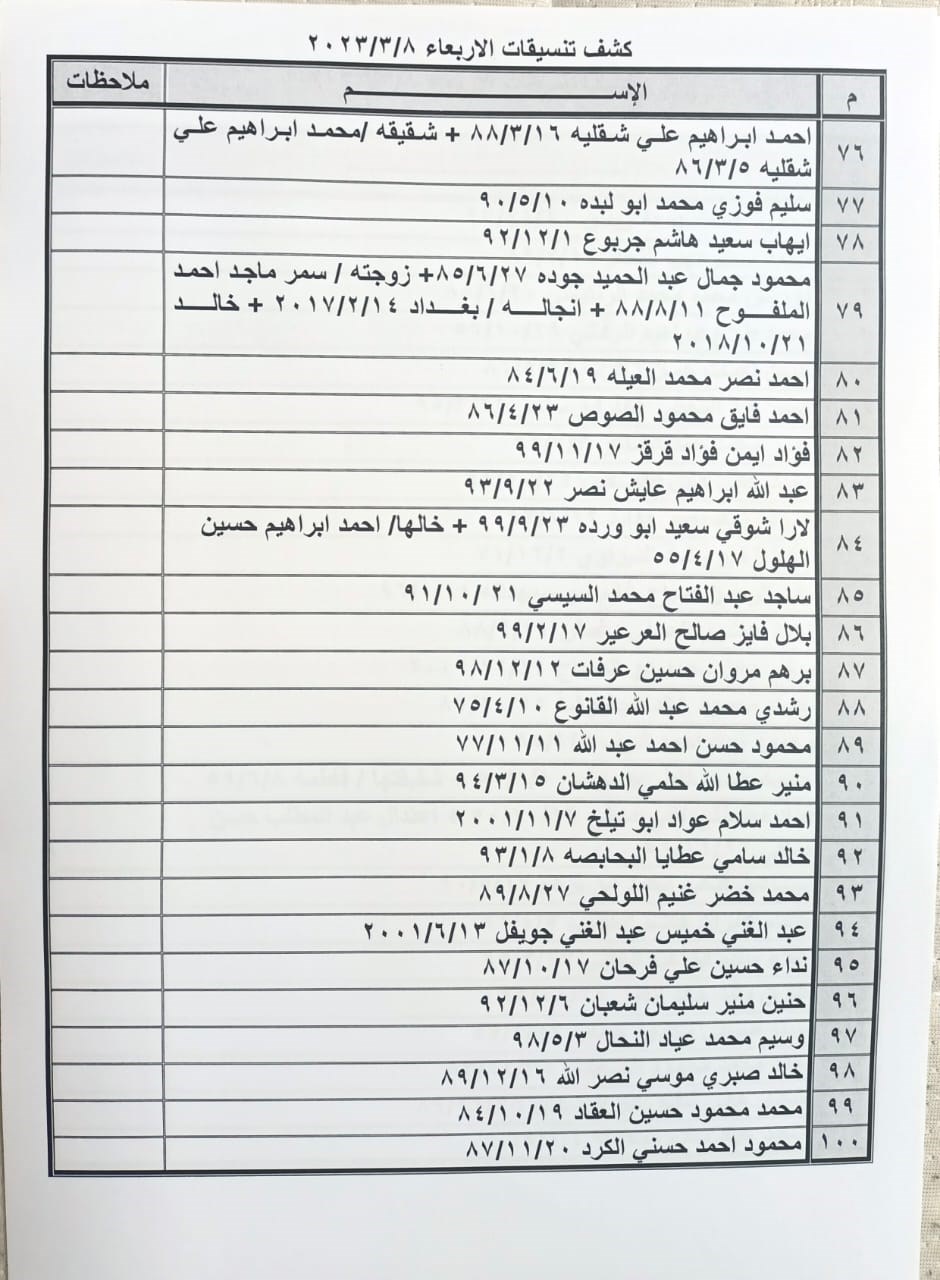 كشف تنسيقات الاربعاء ٢٠٢٣/٣/٨
م الإســـــــــم ملاحظات
٧٦ احمد ابراهيم علي شقليه ٨٨/٣/١٦ + شقيقه /محمد ابراهيم علي
شقليه ٨٦/٣/٥
٧٧ سليم فوزي محمد ابو لبده ٩٠/٥/١٠
٧٨ ايهاب سعيد هاشم جربوع ٩٢/١٢/١
٧٩ محمود جمال عبد الحميد جوده ٨٥/٦/٢٧+ زوجته / سمر ماجد احمد
الملفوح ٨٨/٨/١١ + انجاله / بغداد ٢٠١٧/٢/١٤ + خالد
٢٠١٨/١٠/٢١
٨٠ احمد نصر محمد العيله ٨٤/٦/١٩
٨١ احمد فايق محمود الصوص ٨٦/٤/٢٣
٨٢ فؤاد ايمن فؤاد قرقز ٩٩/١١/١٧
٨٣ عبد الله ابراهيم عايش نصر ٩٣/٩/٢٢
٨٤ لارا شوقي سعيد ابو ورده ٩٩/٩/٢٣ + خالها/ احمد ابراهيم حسين
الهلول ٥٥/٤/١٧
٨٥ ساجد عبد الفتاح محمد السيسي ٢١ /٩١/١٠
٨٦ بلال فايز صالح العرعير ٩٩/٢/١٧
٨٧ برهم مروان حسين عرفات ٩٨/١٢/١٢
٨٨ رشدي محمد عبد الله القانوع ٧٥/٤/١٠
٨٩ محمود حسن احمد عبد الله ٧٧/١١/١١
٩٠ منير عطا الله حلمي الدهشان ٩٤/٣/١٥
٩١ احمد سلام عواد ابو تيلخ ٢٠٠١/١١/٧
٩٢ خالد سامي عطايا البحابصه ٩٣/١/٨
٩٣ محمد خضر غنيم اللولحي ٨٩/٨/٢٧
٩٤ عبد الغني خميس عبد الغني جويفل ٢٠٠١/٦/١٣
٩٥ نداء حسين علي فرحان ٨٧/١٠/١٧
٩٦ حنين منير سليمان شعبان ٩٢/١٢/٦
٩٧ وسيم محمد عياد النحال ٩٨/٥/٣
٩٨ خالد صبري موسي نصر الله ٨٩/١٢/١٦
٩٩ محمد محمود حسين العقاد ٨٤/١٠/١٩
١٠٠ محمود احمد حسني الكرد ٨٧/١١/٢٠